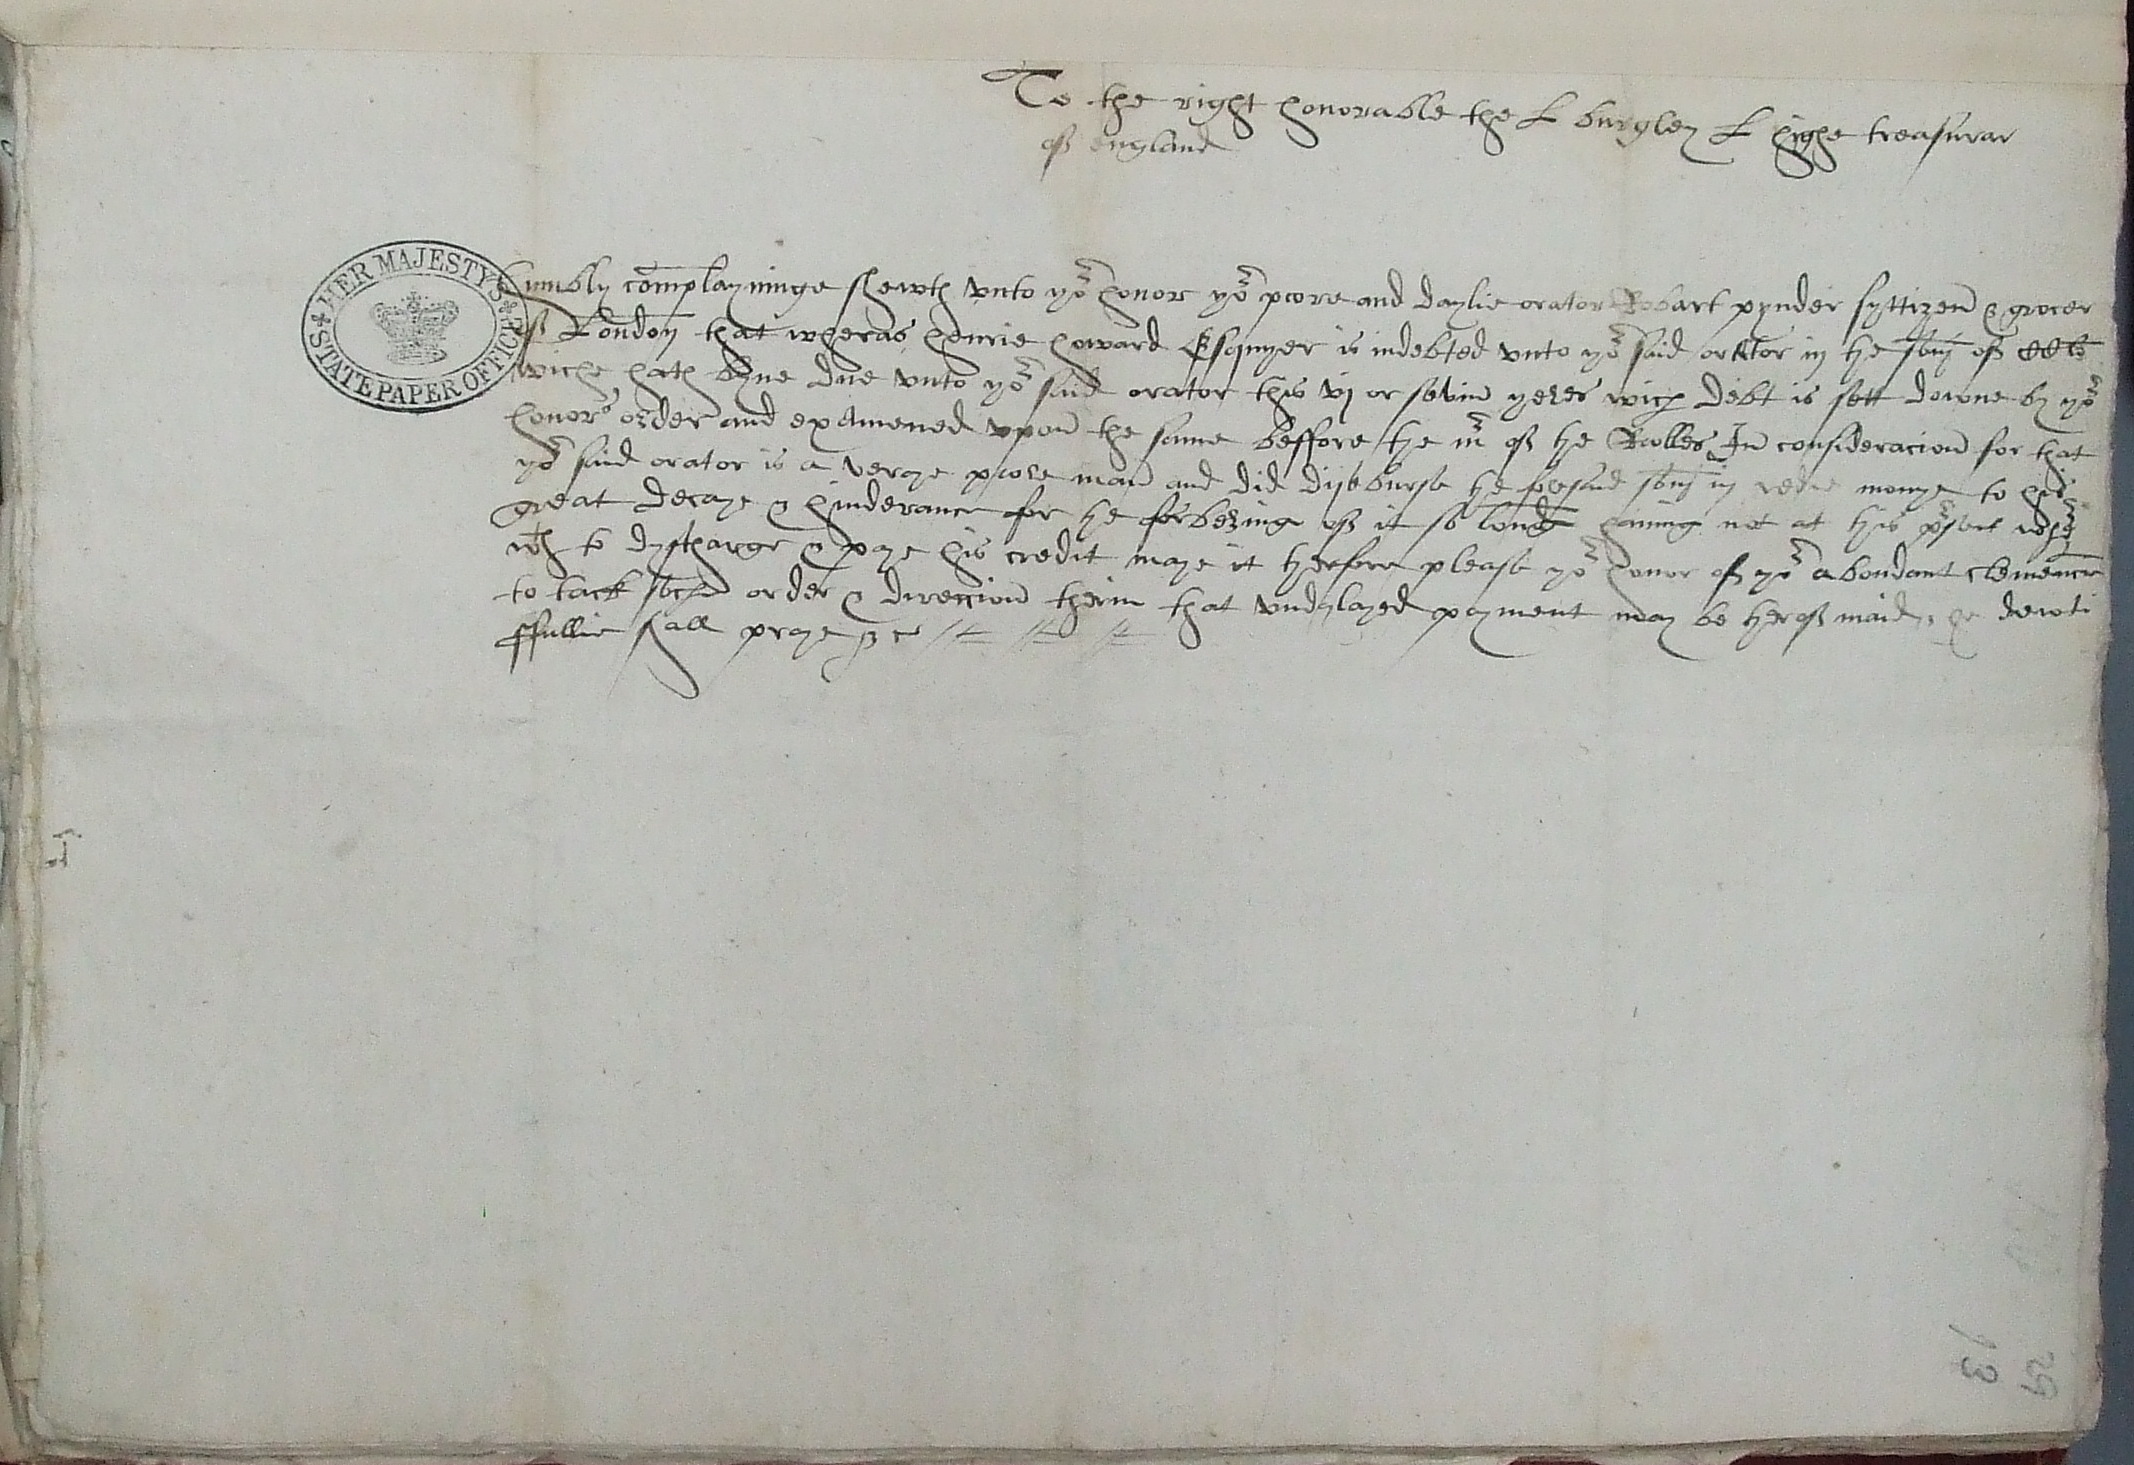 To the right honorable the L burgley L highe treasurar
off england
HER MAJESTY'S STATE PAPER OFFICE
humbly complayninge sheweth vnto yor honor yor poore and daylie orator Robart pynder syttizen & grocer
off London that wheras henrie howard Esquyer is indebted vnto yor said orator in the som off
wiche hath byne due vnto yor said orator this vj or sevin yeres wich debt is sett downe by yor
honors order and examened vpon the same beffore the mr off the Rolles In consideracion for that
yor said orator is a veraye poore man and did disburse the foresaid som in redie monye to his
great decaye & hinderance for the forbering off it so long having not at this present
wth to dyscharge & paye his credit maye it therfore please yor honor off yor abondant clemencie
to tack such order & direccion therin that vndylayed payment may be heroff maid he dewti
ffullie shall praye &c
13
29